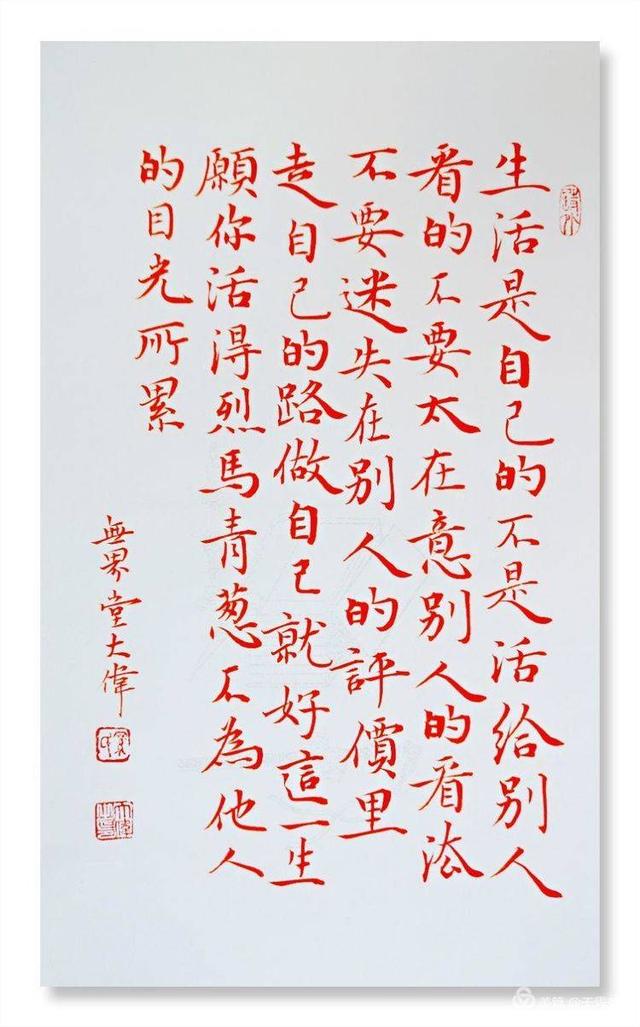 生活是自己的不是活给别人
看的不要太在意别人的看法
不要迷失在别人的評價里
走自己的路做自己就好這一生
願你活得烈馬青葱不為他人
的目光所累
無界堂大偉
美篇